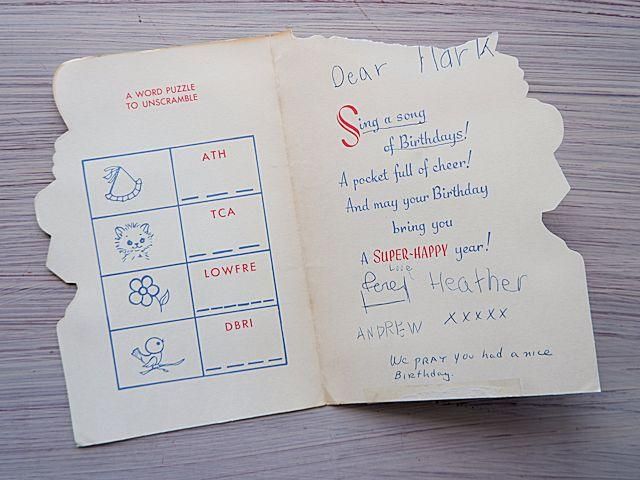 A WORD PUZZLE
TO UNSCRAMBLE
ATH
TCA
LOWFRE
DBRI
Dear Mark
Sing a song
of Birthdays!
A pocket full of cheer!
And may your Birthday
bring you
A SUPER-HAPPY year!
Love
Heather
ANDREW XXXXX
We PRAY You had a nice
Birthday.